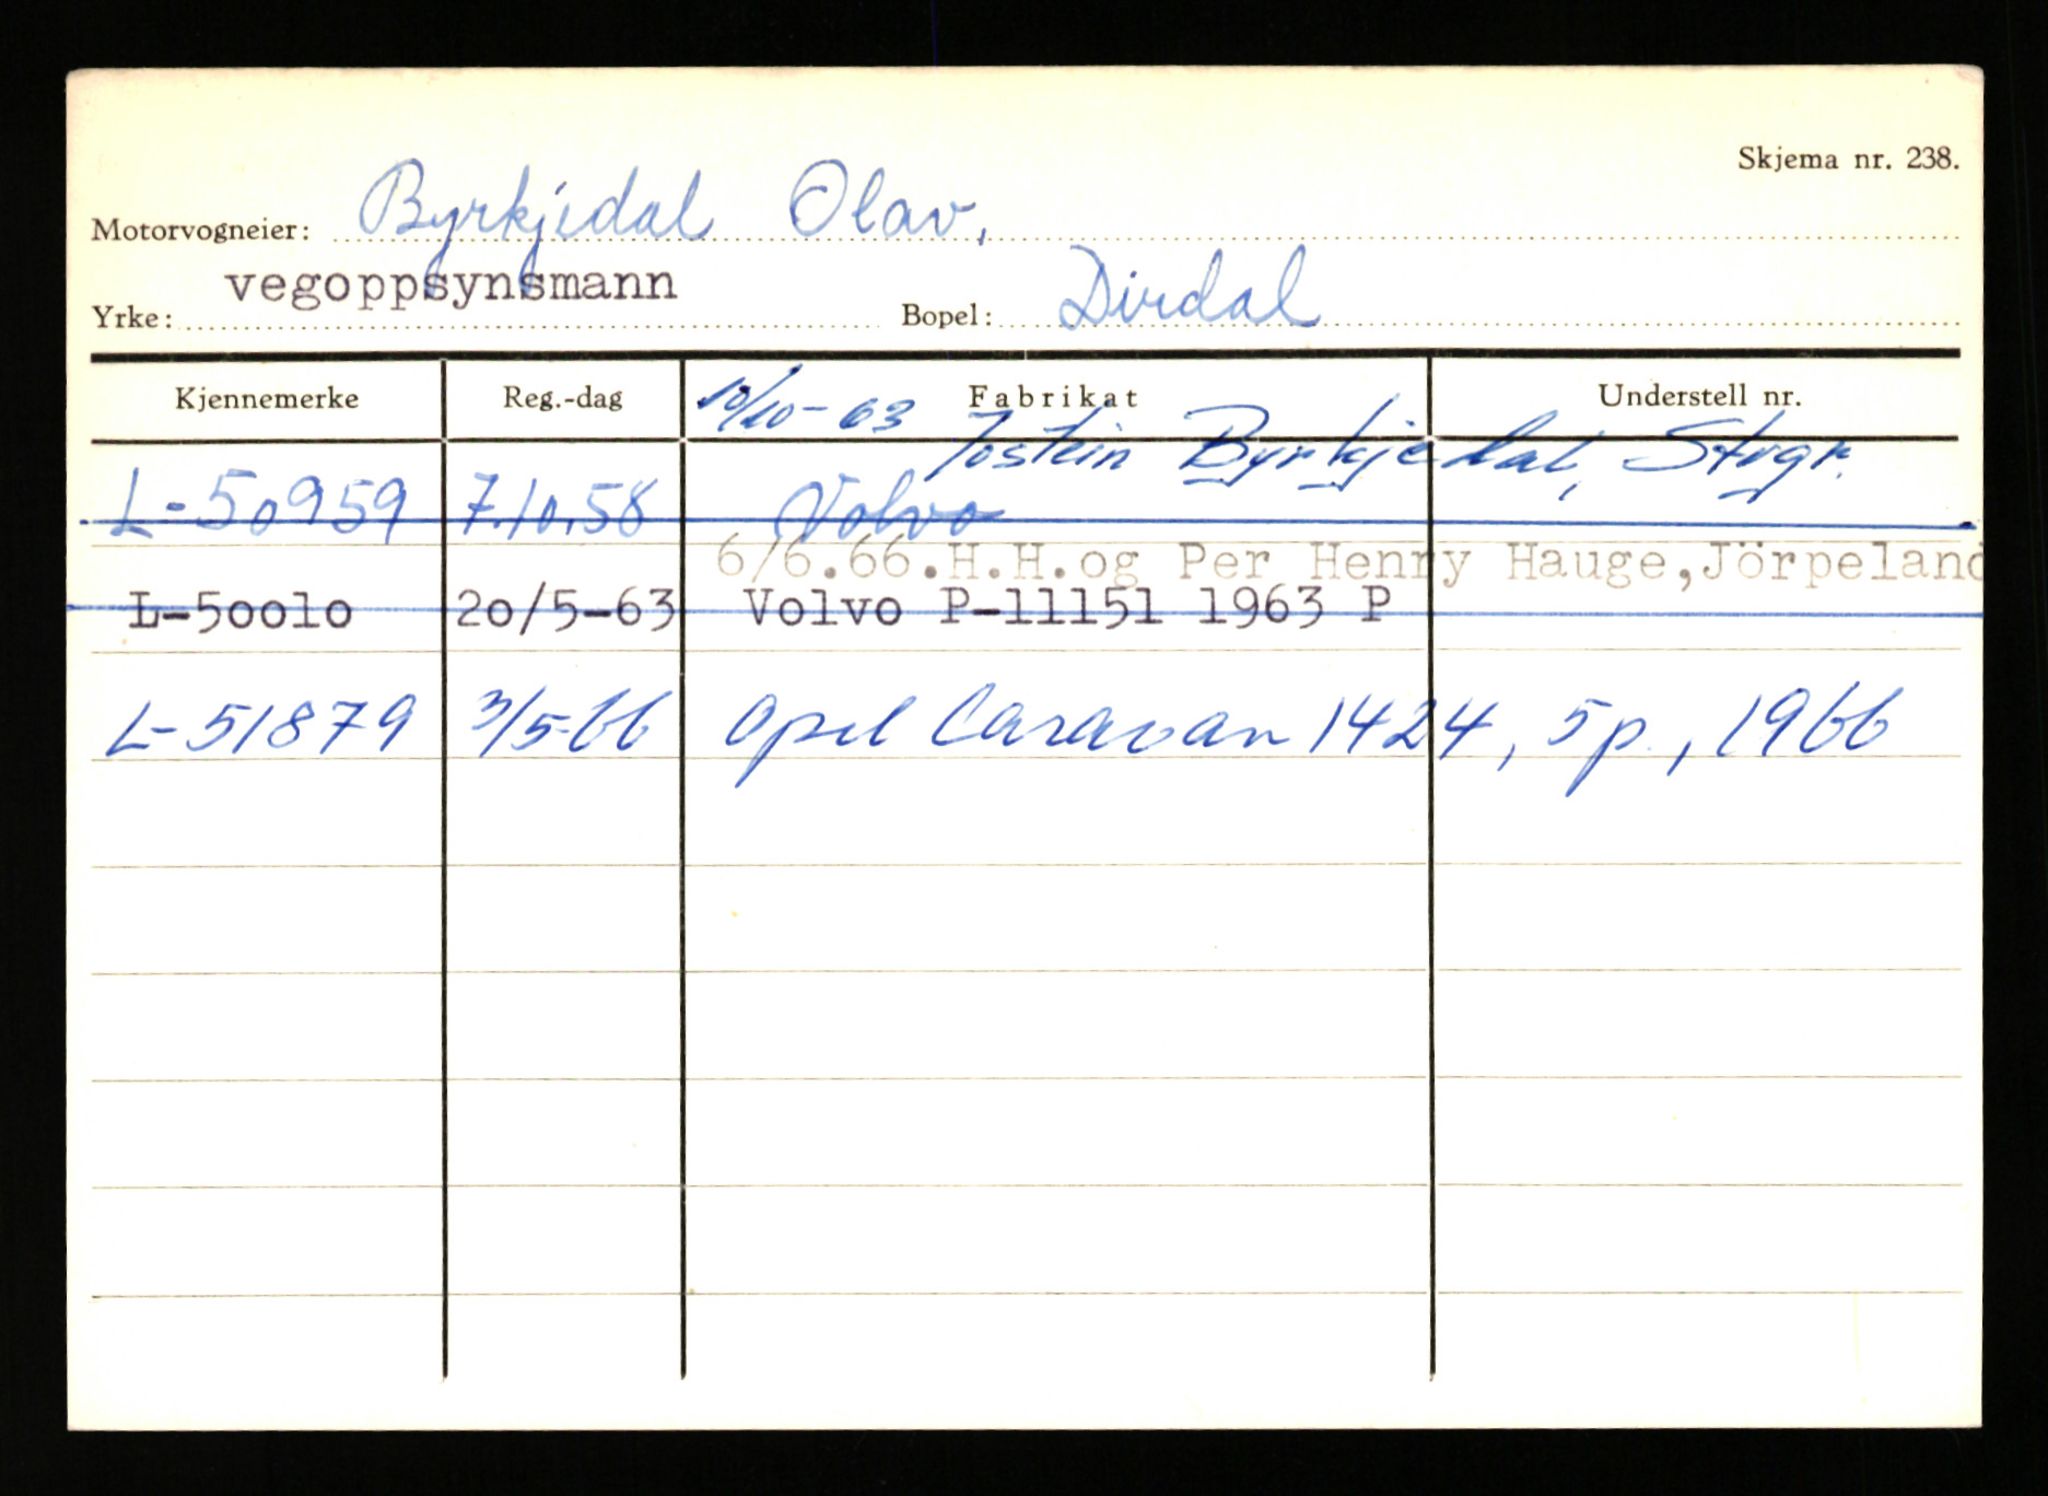 Skjema nr. 238.
Motorvogneier: Byrkjedal Olav,
vegoppsynsmann
Yrke: Bopel: Dirdal
Kjennemerke Reg.-dag Fabrikat Understell nr.
10/10-63 Jostein Byrkjedal, Stvgr.
L-50959 7.10.58 Volvo
6/6.66.H.H.og Per Henry Hauge,Jörpeland
L-50010 20/5-63 Volvo P-11151 1963 P
L-51879 3/5-66 Opel Caravan 1424, 5p., 1966